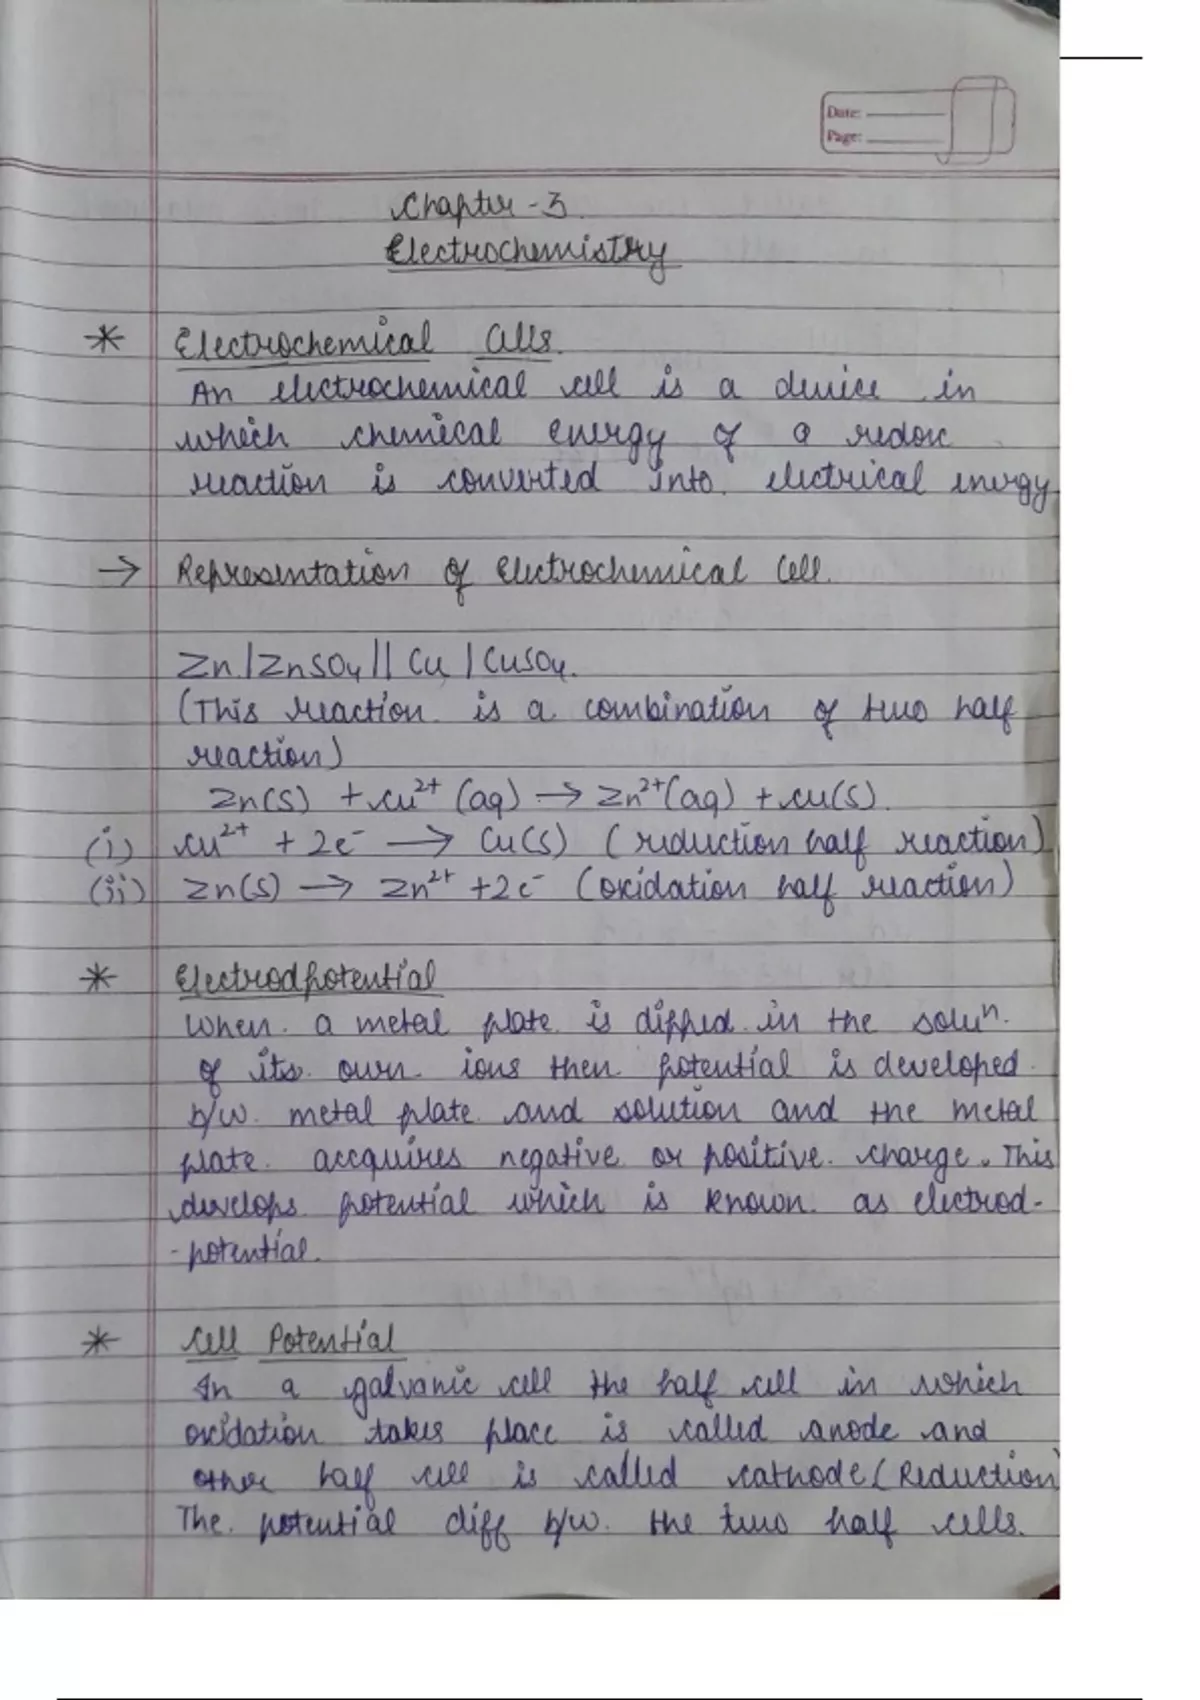 Date:
Page:
Chapter - 3.
Electrochemistry
* Electrochemical Cells.
An electrochemical cell is a device in
which chemical energy of a redox
reaction is converted into electrical energy
→ Representation of Electrochemical Cell.
Zn | ZnSO₄ || Cu | CuSO₄.
(This reaction is a combination of two half
reaction)
Zn(s) + Cu²⁺ (aq) → Zn²⁺(aq) + Cu(s).
(i) Cu²⁺ + 2e⁻ → Cu(s) (reduction half reaction)
(ii) Zn(s) → Zn²⁺ + 2e⁻ (oxidation half reaction)
* Electrodpotential
When a metal plate is dipped in the soluⁿ.
of its own ions then potential is developed
b/w. metal plate and solution and the metal
plate accquires negative or positive charge. This
develops potential which is known as electrod-
-potential.
* Cell Potential
In a galvanic cell the half cell in which
oxidation takes place is called anode and
other half cell is called cathode (Reduction)
The potential diff b/w. the two half cells.